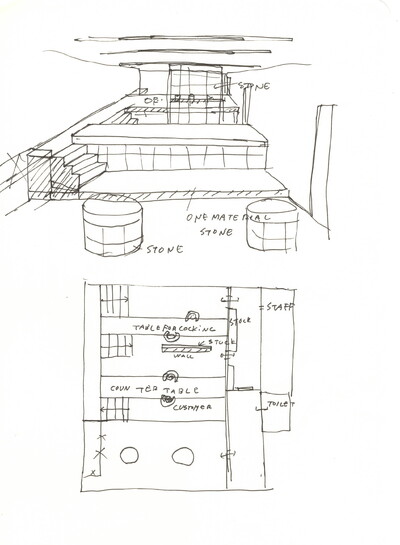 STONE
OB.
ONE MATERIAL
STONE
STONE
STAFF
TABLE FOR COCKING
STOCK
STUCK
WALL
COUNTER TABLE
CUSTOMER
TOILET